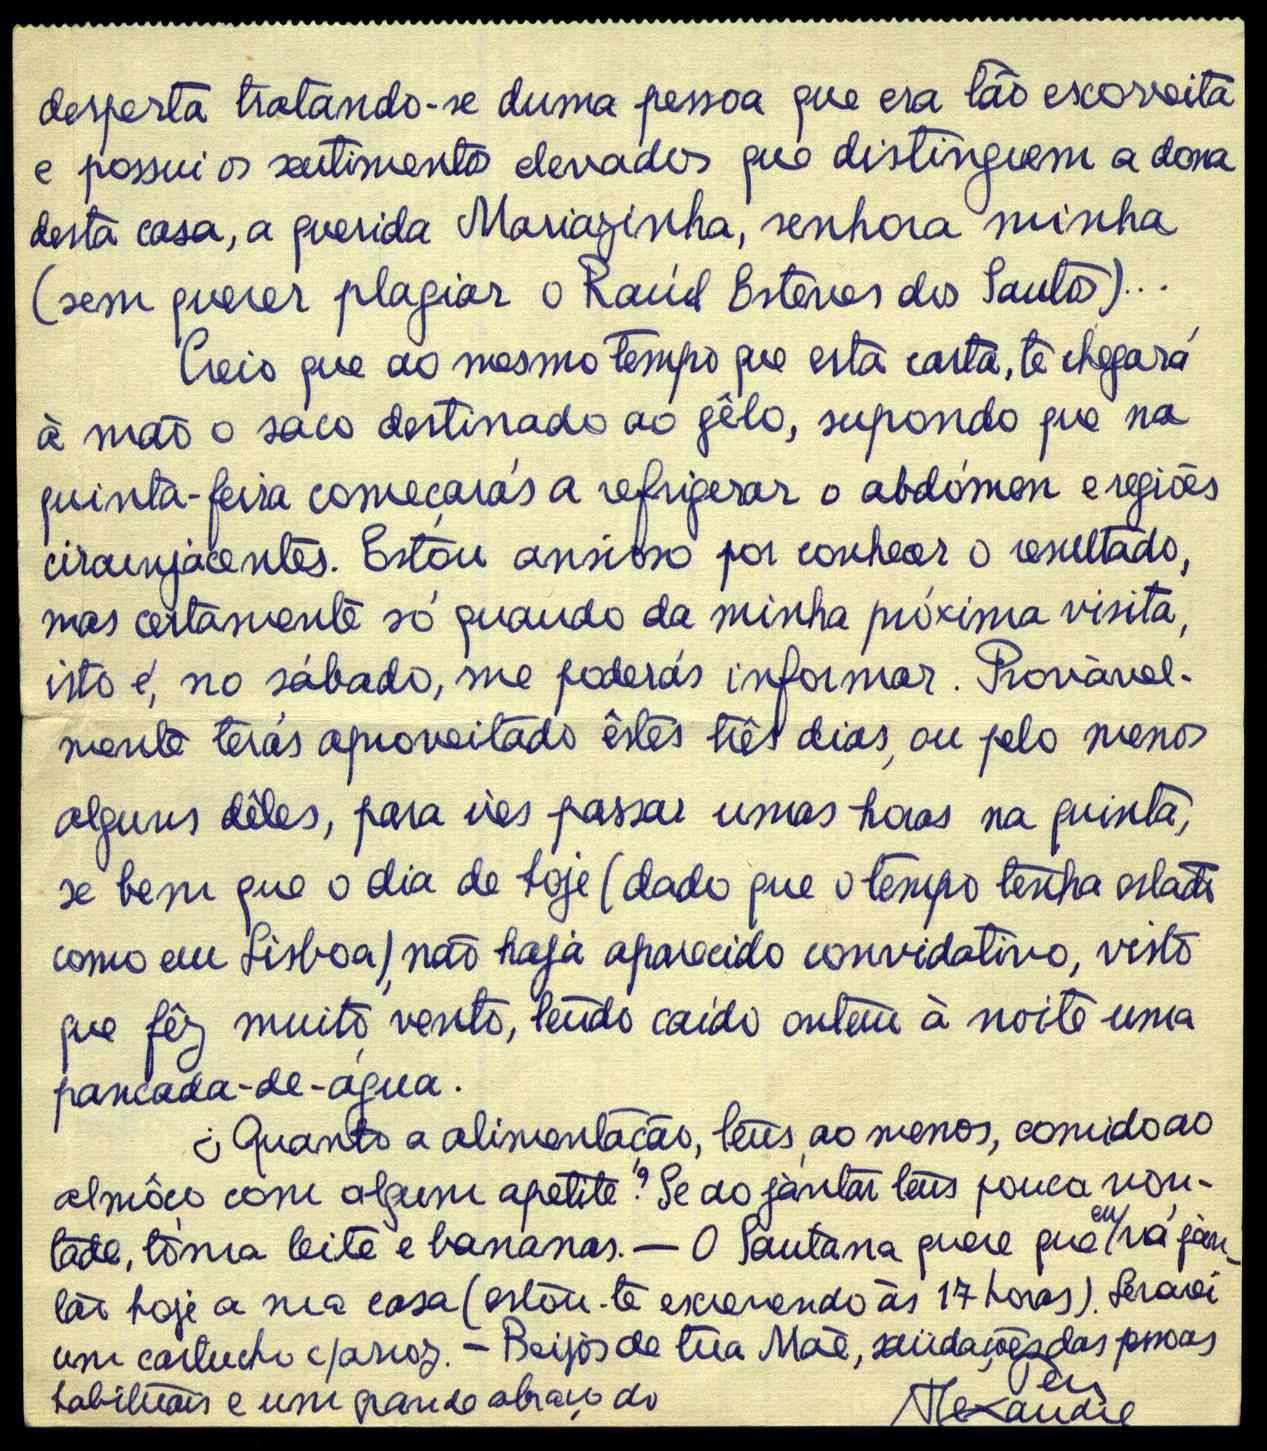 desperta tratando-se duma pessoa que era tão escorreita
e possui os sentimentos elevados que distinguem a dona
desta casa, a querida Mariazinha, senhora minha
(sem querer plagiar o Raúl Esteves dos Santos)...
Creio que ao mesmo tempo que esta carta, te chegará
à mão o saco destinado ao gêlo, supondo que na
quinta-feira começarás a refrigerar o abdómen e regiões
circunjacentes. Estou ansioso por conhecer o resultado,
mas certamente só quando da minha próxima visita,
isto é, no sábado, me poderás informar. Provàvel-
mente terás aproveitado êstes três dias, ou pelo menos
alguns dêles, para ires passar umas horas na quinta,
se bem que o dia de hoje (dado que o tempo tenha estado
como em Lisboa) não haja aparecido convidativo, visto
que fêz muito vento, tendo caído ontem à noite uma
pancada-de-água.
¿Quanto a alimentação, tens, ao menos, comido ao
almôço com algum apetite? Se ao jantar tens pouca von-
tade, toma leite e bananas. — O Santana quere que eu vá jan-
tar hoje a sua casa (estou-te escrevendo às 17 horas). Levarei
um cartucho c/arroz. — Beijos de tua Mãe, saüdações das pessoas
habituais e um grande abraço do
Teu
Alexandre